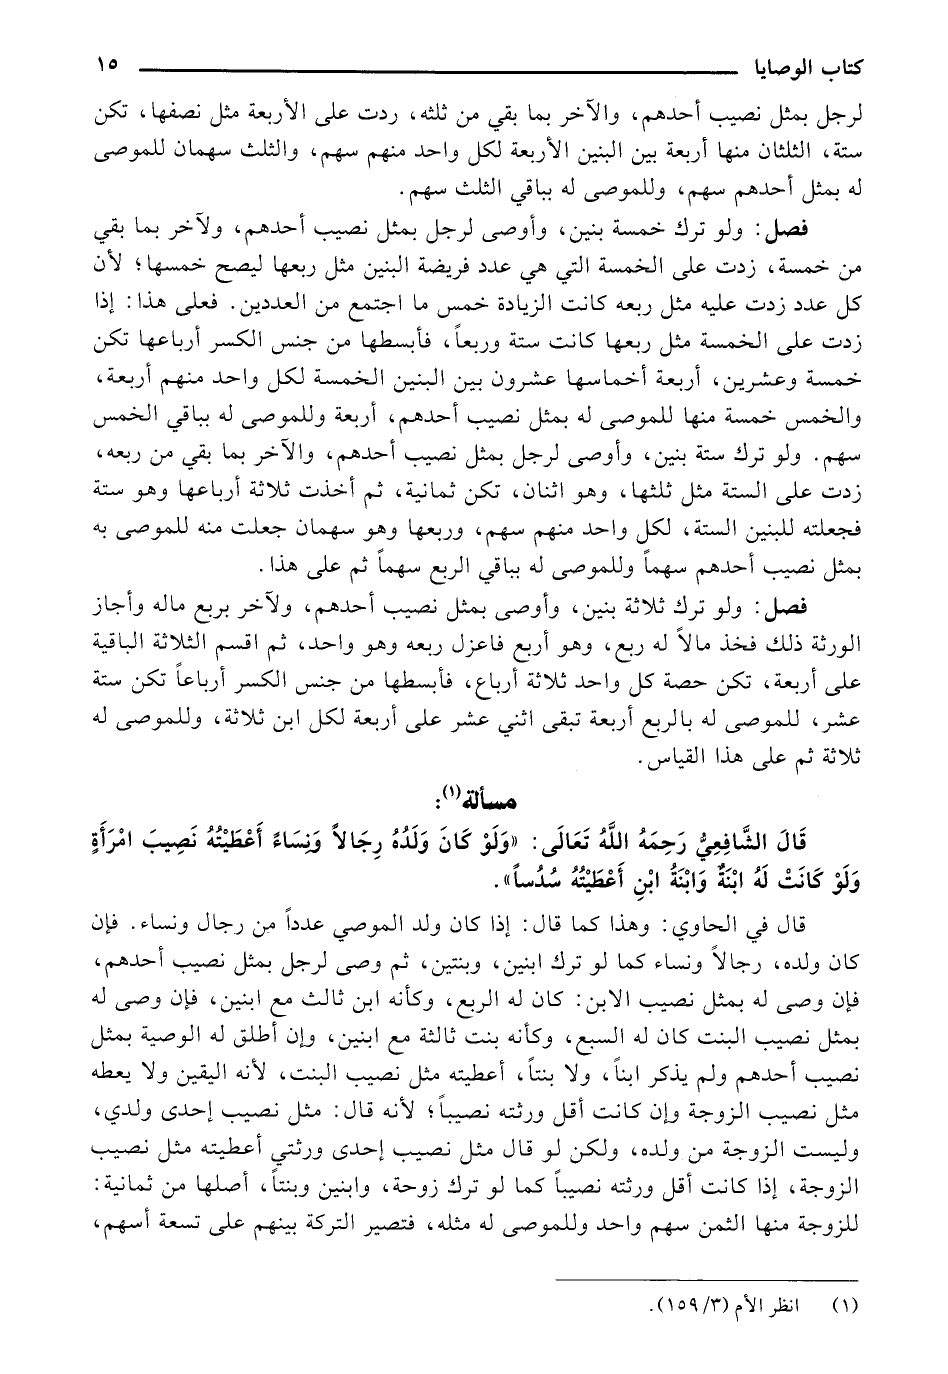 كتاب الوصايا ١٥
لرجل بمثل نصيب أحدهم، والآخر بما بقي من ثلثه، ردت على الأربعة مثل نصفها، تكن
ستة، الثلثان منها أربعة بين البنين الأربعة لكل واحد منهم سهم، والثلث سهمان للموصى
له بمثل أحدهم سهم، وللموصى له بباقي الثلث سهم.
فصل: ولو ترك خمسة بنين، وأوصى لرجل بمثل نصيب أحدهم، ولآخر بما بقي
من خمسة، زدت على الخمسة التي هي عدد فريضة البنين مثل ربعها ليصح خمسها؛ لأن
كل عدد زدت عليه مثل ربعه كانت الزيادة خمس ما اجتمع من العددين. فعلى هذا: إذا
زدت على الخمسة مثل ربعها كانت ستة وربعاً، فأبسطها من جنس الكسر أرباعها تكن
خمسة وعشرين، أربعة أخماسها عشرون بين البنين الخمسة لكل واحد منهم أربعة،
والخمس خمسة منها للموصى له بمثل نصيب أحدهم، أربعة وللموصى له بباقي الخمس
سهم. ولو ترك ستة بنين، وأوصى لرجل بمثل نصيب أحدهم، والآخر بما بقي من ربعه،
زدت على الستة مثل ثلثها، وهو اثنان، تكن ثمانية، ثم أخذت ثلاثة أرباعها وهو ستة
فجعلته للبنين الستة، لكل واحد منهم سهم، وربعها وهو سهمان جعلت منه للموصى به
بمثل نصيب أحدهم سهماً وللموصى له بباقي الربع سهماً ثم على هذا.
فصل: ولو ترك ثلاثة بنين، وأوصى بمثل نصيب أحدهم، ولآخر بربع ماله وأجاز
الورثة ذلك فخذ مالاً له ربع، وهو أربع فاعزل ربعه وهو واحد، ثم اقسم الثلاثة الباقية
على أربعة، تكن حصة كل واحد ثلاثة أرباع، فأبسطها من جنس الكسر أرباعاً تكن ستة
عشر، للموصى له بالربع أربعة تبقى اثني عشر على أربعة لكل ابن ثلاثة، وللموصى له
ثلاثة ثم على هذا القياس.
مسألة(١):
قَالَ الشَّافِعِيُّ رَحِمَهُ اللَّهُ تَعَالَى: «وَلَوْ كَانَ وَلَدُهُ رِجَالاً وَنِسَاءً أَعْطَيْتُهُ نَصِيبَ امْرَأَةٍ
وَلَوْ كَانَتْ لَهُ ابْنَةٌ وَابْنَةُ ابْنِ أَعْطَيْتُهُ سُدُساً».
قال في الحاوي: وهذا كما قال: إذا كان ولد الموصي عدداً من رجال ونساء. فإن
كان ولده، رجالاً ونساء كما لو ترك ابنين، وبنتين، ثم وصى لرجل بمثل نصيب أحدهم،
فإن وصى له بمثل نصيب الابن: كان له الربع، وكأنه ابن ثالث مع ابنين، فإن وصى له
بمثل نصيب البنت كان له السبع، وكأنه بنت ثالثة مع ابنين، وإن أطلق له الوصية بمثل
نصيب أحدهم ولم يذكر ابناً، ولا بنتاً، أعطيته مثل نصيب البنت، لأنه اليقين ولا يعطه
مثل نصيب الزوجة وإن كانت أقل ورثته نصيباً؛ لأنه قال: مثل نصيب إحدى ولدي،
وليست الزوجة من ولده، ولكن لو قال مثل نصيب إحدى ورثتي أعطيته مثل نصيب
الزوجة، إذا كانت أقل ورثته نصيباً كما لو ترك زوحة، وابنين وبنتاً، أصلها من ثمانية:
للزوجة منها الثمن سهم واحد وللموصى له مثله، فتصير التركة بينهم على تسعة أسهم،
(١) انظر الأم (٣/ ١٥٩).